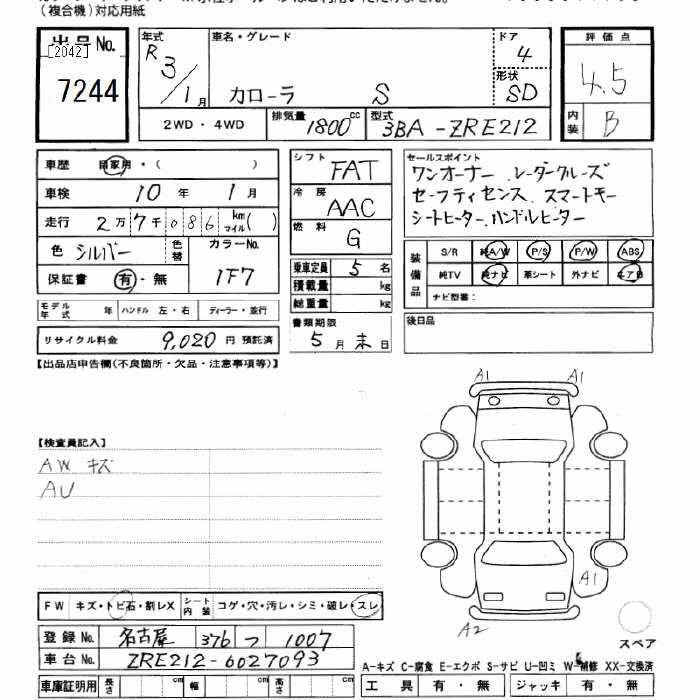 (複合機)対応用紙
出品No.
[2042]
7244
年式 R3/1月
車名・グレード
カローラ S
ドア 4
形状 SD
評価点
4.5
内装 B
2WD・4WD
排気量 1800 cc
型式 3BA-ZRE212
車歴 自家用・( )
車検 10年 1月
走行 2万7千086 km マイル( )
色 シルバー 色替 カラーNo. 1F7
保証書 有・無
モデル年式 年 ハンドル 左・右 ディーラー・並行
リサイクル料金 9,020 円 預託済
シフト FAT
冷房 AAC
燃料 G
乗車定員 5 名
積載量 kg
総重量 kg
書類期限
5月末日
セールスポイント
ワンオーナー レーダークルーズ
セーフティセンス スマートキー
シートヒーター、ハンドルヒーター
装備品 S/R 純A/W P/S P/W ABS
純TV 純ナビ 革シート 外ナビ エアB
ナビ型番:
後日品
【出品店申告欄(不良箇所・欠品・注意事項等)】
【検査員記入】
AW キズ
AU
A1 A1
A1
A2
スペア
FW キズ・トビ石・割レX シート内装 コゲ・穴・汚レ・シミ・破レ・スレ
登録No. 名古屋 376 つ 1007
車台No. ZRE212-6027093
車庫証明用 長さ cm 幅 cm 高さ cm
A-キズ C-腐食 E-エクボ S-サビ U-凹ミ W-補修 XX-交換済
工具 有・無 ジャッキ 有・無